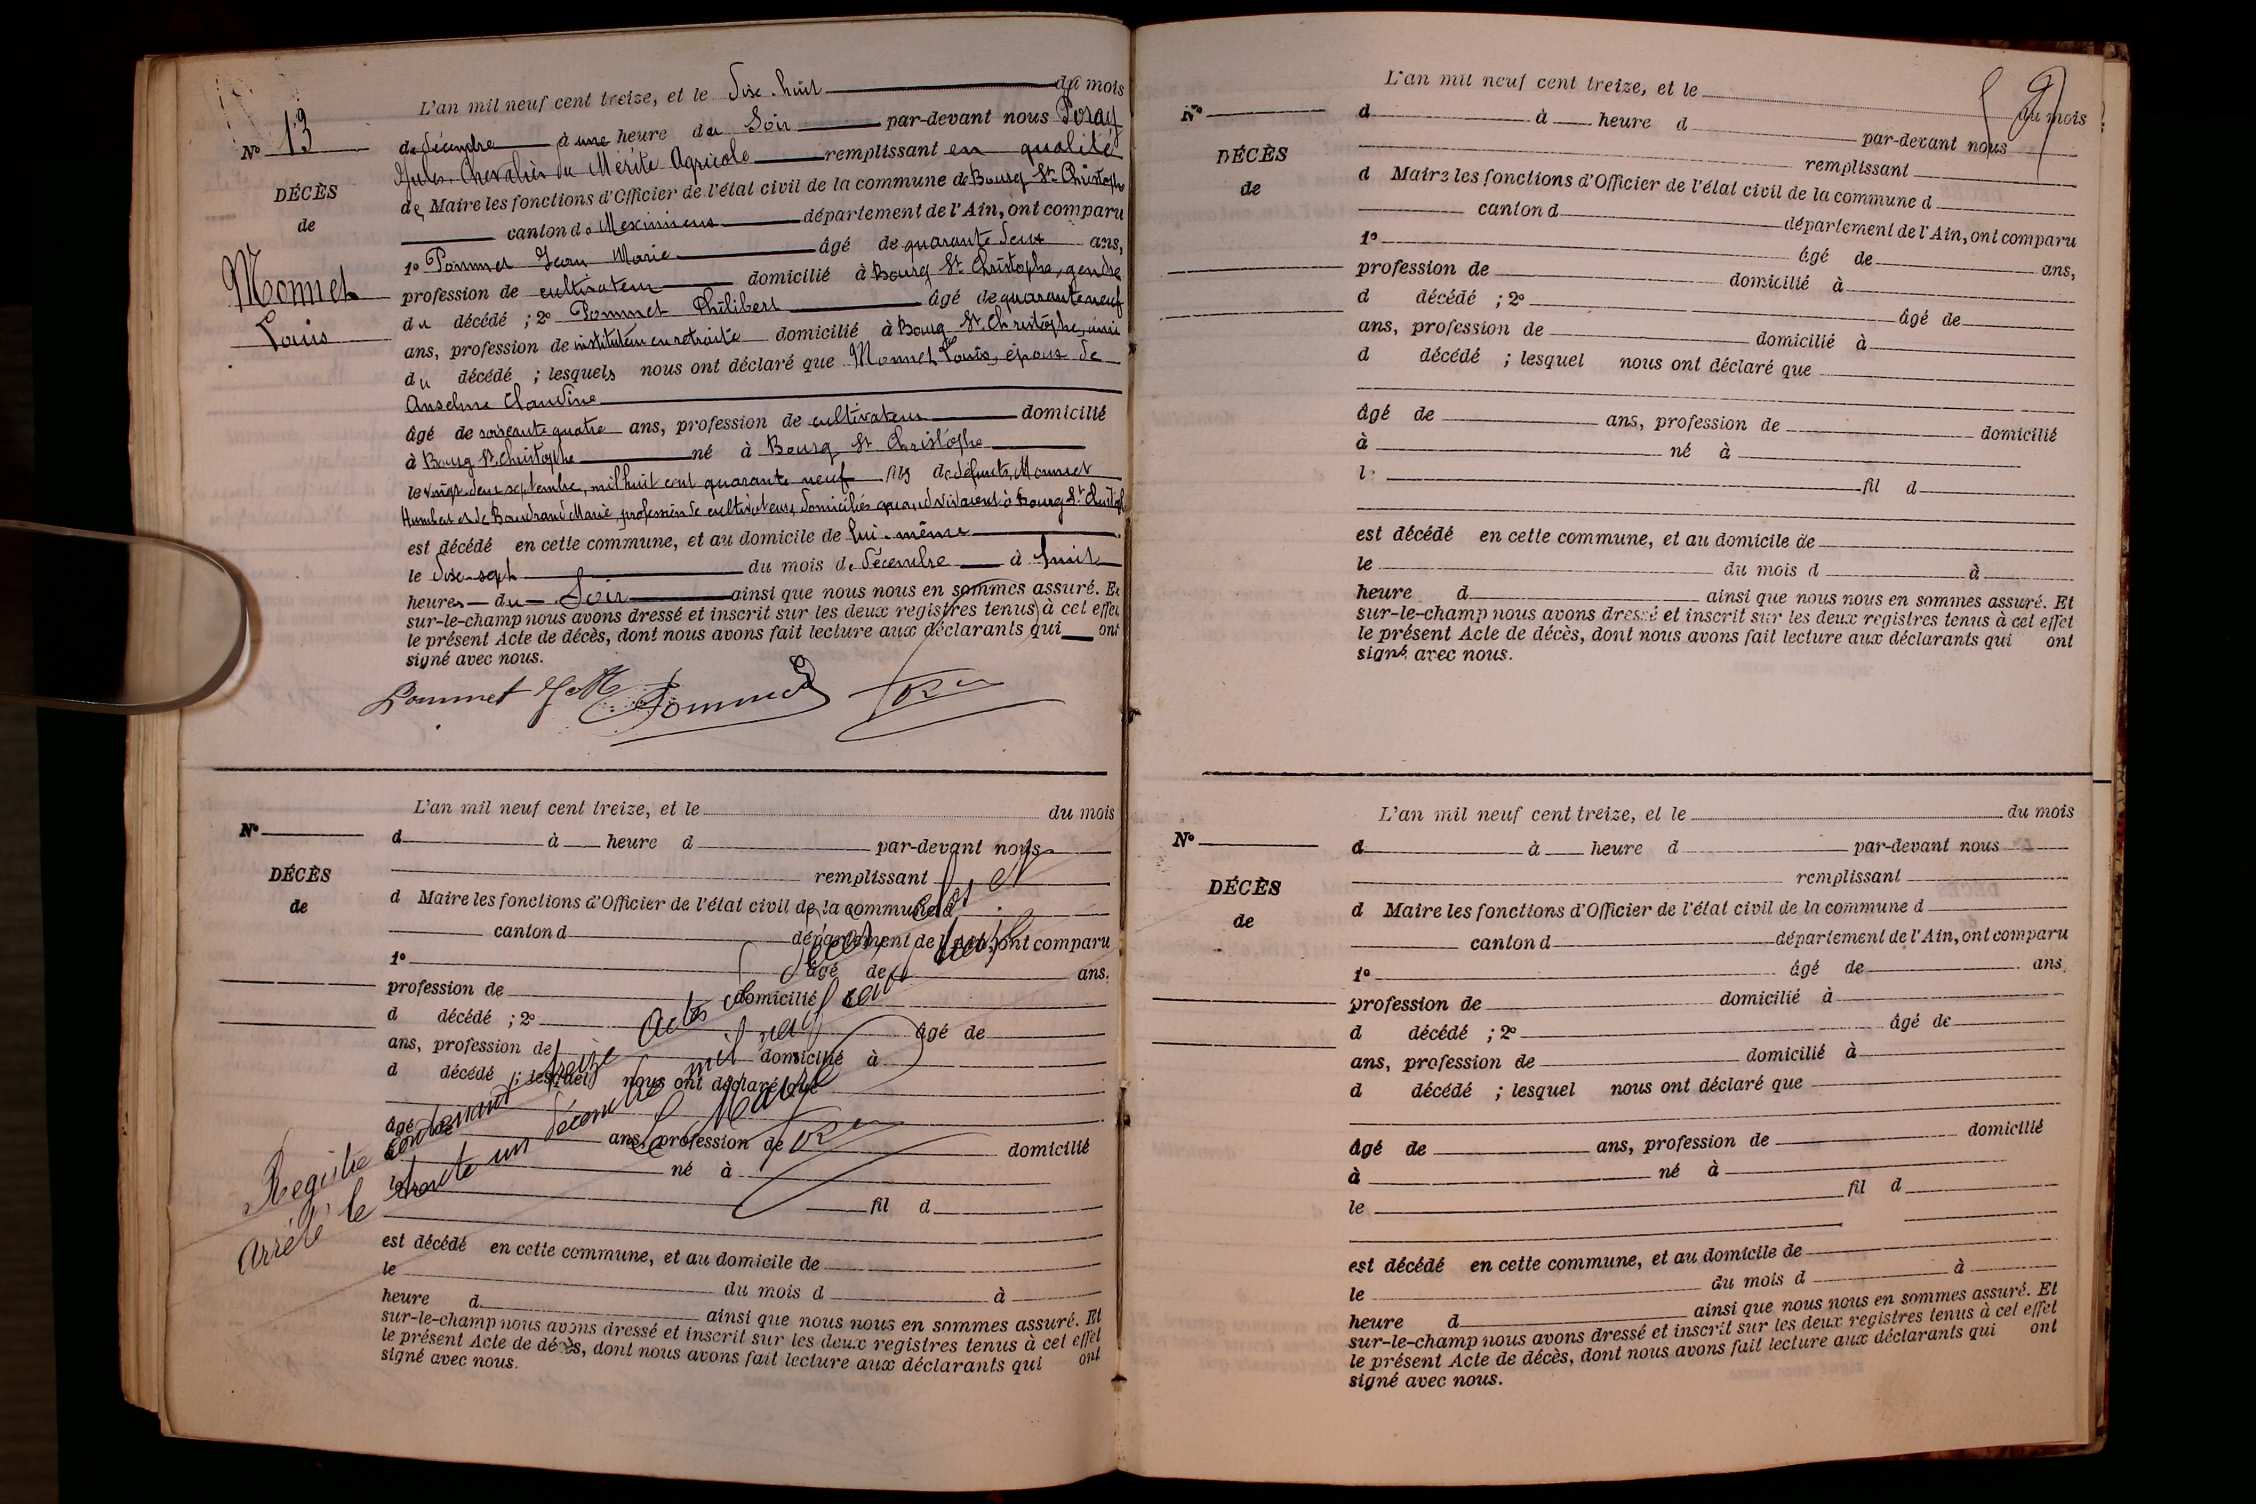 N° 13
DÉCÈS
de
Monnet
Louis
L'an mil neuf cent treize, et le dix-huit du mois
de décembre à une heure du Soir par-devant nous
Jules, Chevalier du Mérite Agricole remplissant en qualité
de Maire les fonctions d'Officier de l'état civil de la commune de Bourg St Christophe
canton de Meximieux département de l'Ain, ont comparu
1° Pommet Jean Marie âgé de quarante deux ans,
profession de cultivateur domicilié à Bourg St Christophe, gendre
du décédé ; 2° Pommet Philibert âgé de quarante neuf
ans, profession de instituteur en retraite domicilié à Bourg St Christophe, ami
du décédé ; lesquels nous ont déclaré que Monnet Louis, époux de
Anselme Claudine
âgé de soixante quatre ans, profession de cultivateur domicilié
à Bourg St Christophe né à Bourg St Christophe
le vingt deux septembre, mil huit cent quarante neuf fils de défunts Monnet
Humbert et de Boudrand Marie, profession de cultivateurs domiciliés quand vivaient à Bourg St Christophe
est décédé en cette commune, et au domicile de lui-même
le dix-sept du mois de décembre à huit
heures du Soir ainsi que nous nous en sommes assuré. Et
sur-le-champ nous avons dressé et inscrit sur les deux registres tenus à cet effet
le présent Acte de décès, dont nous avons fait lecture aux déclarants qui ont
signé avec nous.
Pommet J M Pommet
N°
DÉCÈS
de
L'an mil neuf cent treize, et le du mois
d à heure d par-devant nous
remplissant
d Maire les fonctions d'Officier de l'état civil de la commune d
canton d département de l'Ain, ont comparu
1° âgé de ans,
profession de domicilié à
d décédé ; 2° âgé de
ans, profession de domicilié à
d décédé ; lesquel nous ont déclaré que
âgé de ans, profession de domicilié
à né à
le fil d
est décédé en cette commune, et au domicile de
le du mois d à
heure d ainsi que nous nous en sommes assuré. Et
sur-le-champ nous avons dressé et inscrit sur les deux registres tenus à cet effet
le présent Acte de décès, dont nous avons fait lecture aux déclarants qui ont
signé avec nous.
Registre contenant treize actes de décès, clos et
arrêté le trente un décembre mil neuf cent treize
Le Maire
9
N°
DÉCÈS
de
L'an mil neuf cent treize, et le du mois
d à heure d par-devant nous
remplissant
d Maire les fonctions d'Officier de l'état civil de la commune d
canton d département de l'Ain, ont comparu
1° âgé de ans,
profession de domicilié à
d décédé ; 2° âgé de
ans, profession de domicilié à
d décédé ; lesquel nous ont déclaré que
âgé de ans, profession de domicilié
à né à
l fil d
est décédé en cette commune, et au domicile de
le du mois d à
heure d ainsi que nous nous en sommes assuré. Et
sur-le-champ nous avons dressé et inscrit sur les deux registres tenus à cet effet
le présent Acte de décès, dont nous avons fait lecture aux déclarants qui ont
signé avec nous.
N°
DÉCÈS
de
L'an mil neuf cent treize, et le du mois
d à heure d par-devant nous
remplissant
d Maire les fonctions d'Officier de l'état civil de la commune d
canton d département de l'Ain, ont comparu
1° âgé de ans,
profession de domicilié à
d décédé ; 2° âgé de
ans, profession de domicilié à
d décédé ; lesquel nous ont déclaré que
âgé de ans, profession de domicilié
à né à
le fil d
est décédé en cette commune, et au domicile de
le du mois d à
heure d ainsi que nous nous en sommes assuré. Et
sur-le-champ nous avons dressé et inscrit sur les deux registres tenus à cet effet
le présent Acte de décès, dont nous avons fait lecture aux déclarants qui ont
signé avec nous.